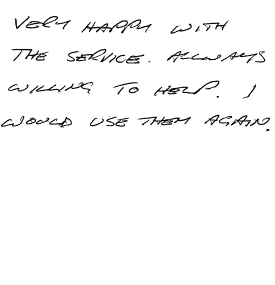 VERY HAPPY WITH
THE SERVICE. ALLWAYS
WILLING TO HELP. I
WOULD USE THEM AGAIN.